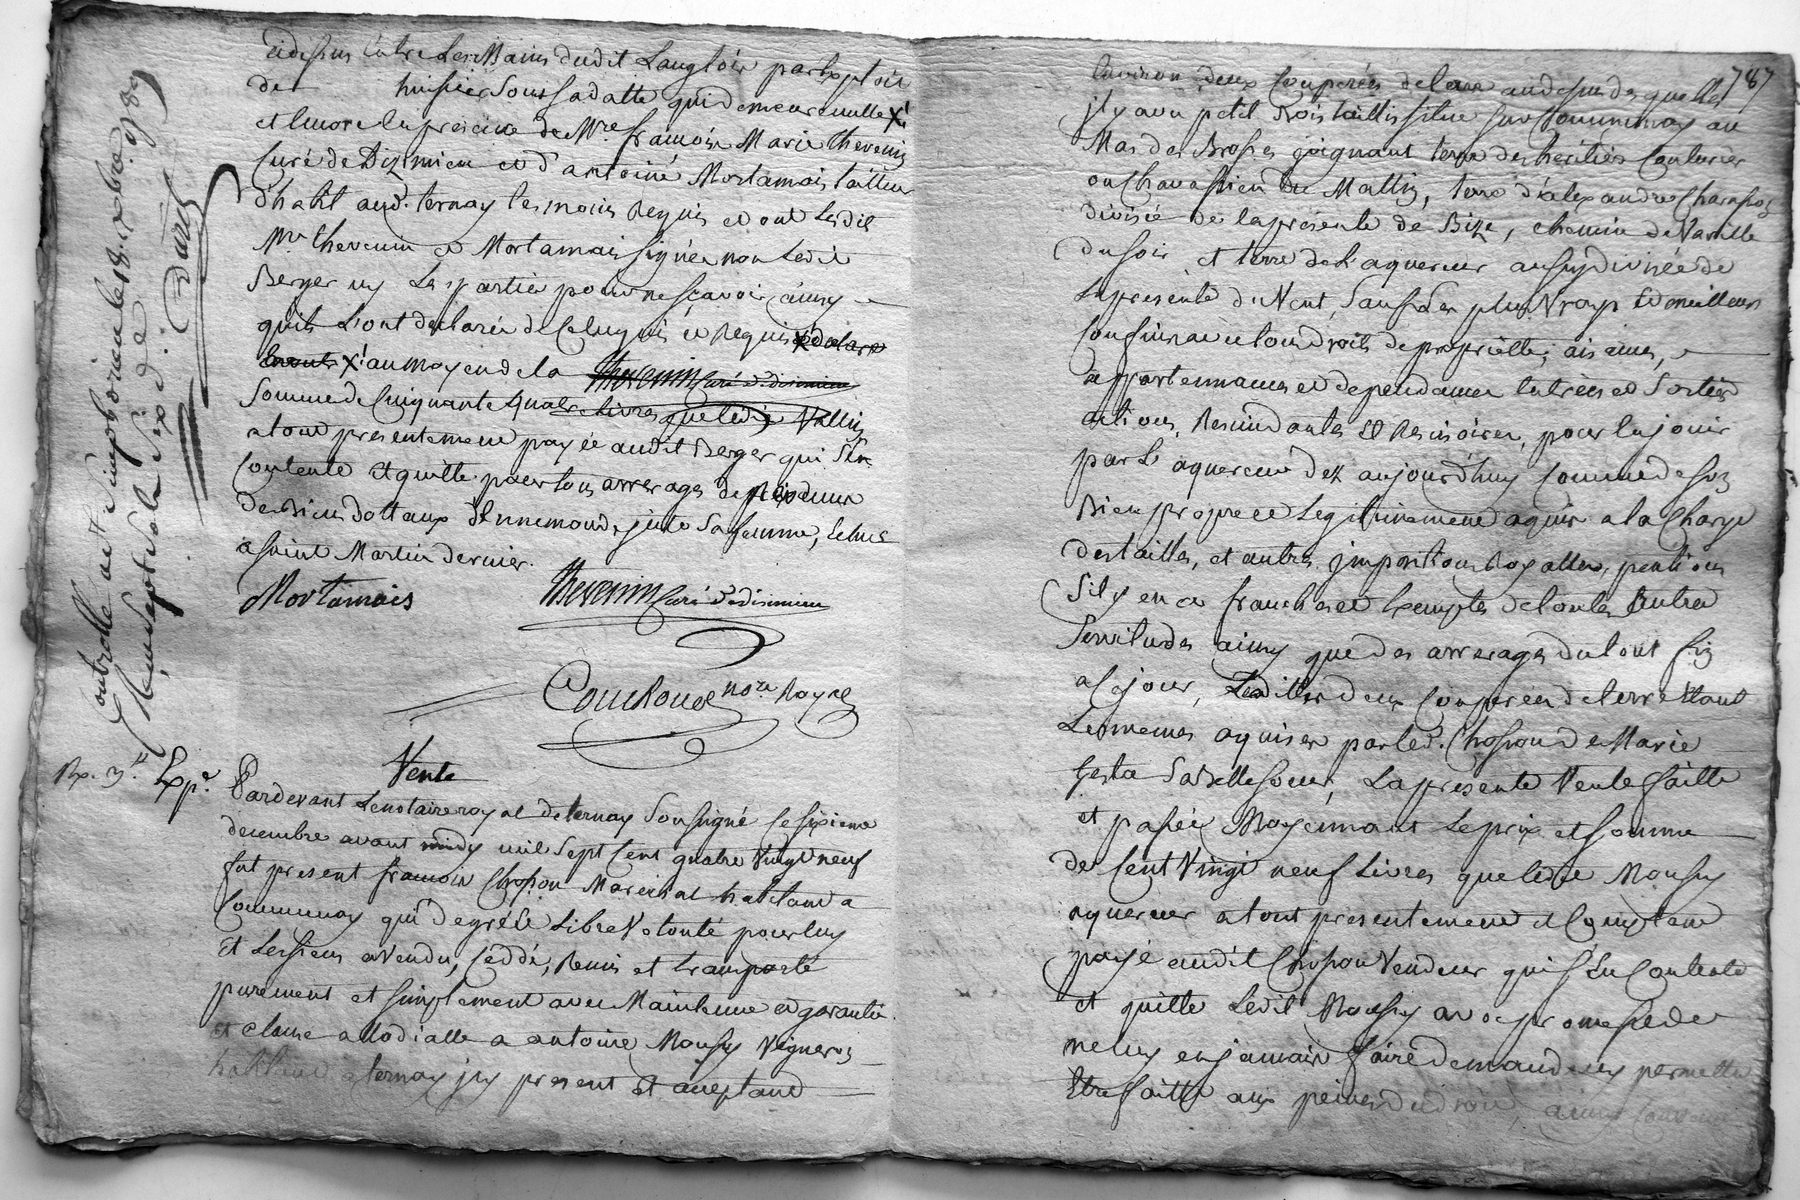 cidessus Entre Les Mains dudit Langlois par Exploit
de huissier sous sadatte qui demeure nulle X
et Encore En presence de Mre. françois Marie thevenin
Curé de Dizimieu et d'antoine Mortamais tailleur
d'habit aud. ternay temoins Requis et ont Lesdit
Mre thevenin et Mortamais signée non Ledit
Berger ny Les parties pour ne sçavoir ainsy
quils L'ont declarée de Ce Enquis et Requis
X au moyen de la Thevenin Curé de disimieu
Somme de Cinquante quatre Livres que ledit Vallin
atout presentement payée audit Berger qui S'En
Contente et quitte pour tous arrerages de
de Bien dottaux d'Ennemonde jute Sa femme, Echus
a saint Martin dernier.
Mortamais Thevenin Curé de disimieu
nore Royal
Controllé a st simphorien le 18. xbre 1789
Reçu Sept sols Six d.
Vente
R. 3tt Expe.
Pardevant Lenotaire royal de ternay Soussigné Ce sixieme
decembre avant midy mil Sept Cent quatre Vingt neuf
fut present françois Chosson Marechal habitant a
Communay qui de gré et Libre Volonté pour luy
Et Lessiens a Vendu, Ceddé, Remis et transporté
purement et simplement avec Maintenue et garantie
et clause allodialle a antoine Moussy Vigneron
habitant a ternay jcy present Et aceptant
787
Environ deux Couperées de terre audessus desquelles
jl y a un petit Bois taillis situé sur Communay au
Mas des Brosses joignant terre des heritiers Couturier
ou Chavassieu du Mattin, terre d'alexandre
divisée de la présente de Bize, chemin de
du soir et terre de L'aquereur aussy divisée de
La presente du Vent, Sauf Les plus Vrays Et meilleurs
Confins avec tous droits de proprietté, aisances,
appartennances et dependances Entrées et Sorties
actions, Rescindantes Et Rescisoires, pour En jouir
par L'aquereur dez aujourd'huy Comme de son
Bien propre et Legitimement aquis a la Charge
des tailles, et autres jmpositions Royalles, pentions
S'il y en a franches et Exemptes de toutes Autres
Servitudes ainsy que des arrerages du tout fin
a Ce jour, Lesdittes deux Couperées de terre Etant
Les memes aquises par led. Chosson de Marie
Sa Belle soeur, La presente Vente faitte
et passée Moyennant Le prix et somme
de Cent Vingt neuf Livres que ledit Moussy
aquereur a tout presentement et Comptant
payé audit Chosson Vendeur qui S'En Contente
et quitte Ledit Moussy avec promesse de
ne luy en jamais faire demande ny permettre
Etre faitte aux peines de droit, ainsy Convenu